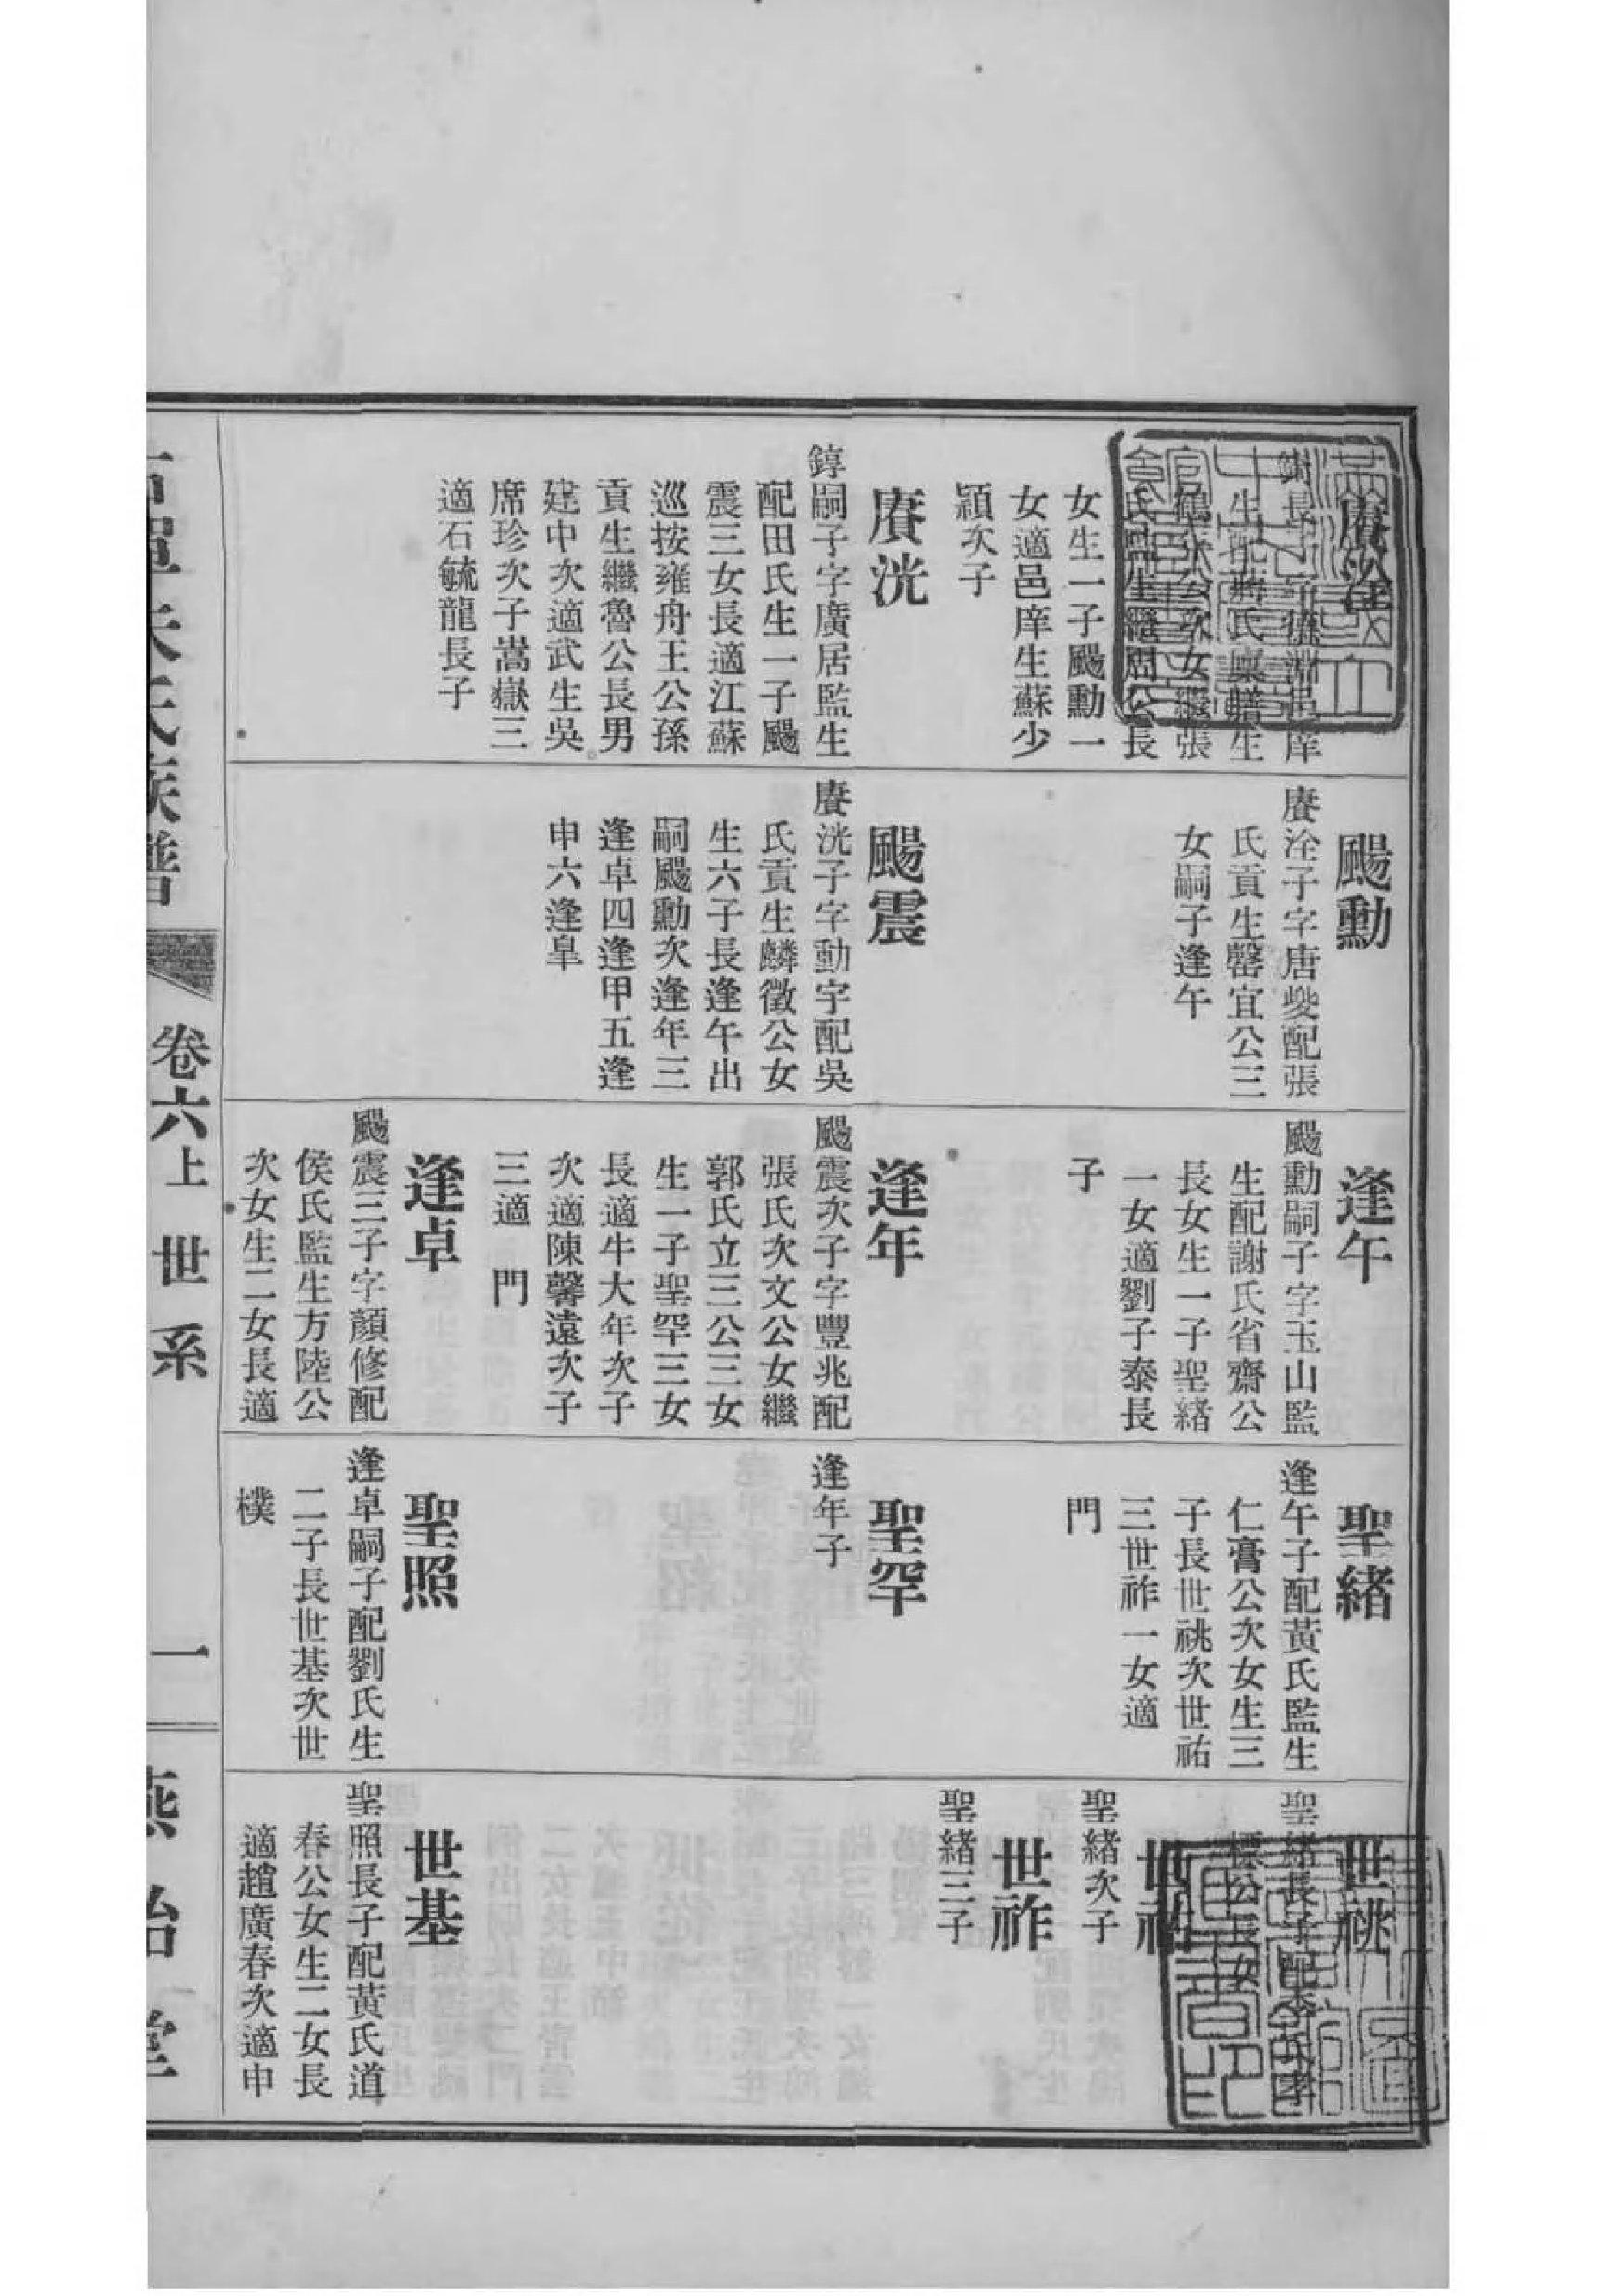 賡洤
生配蔣氏廩膳生
鶴
氏監生繼周公長
女生一子颺勳一
女適邑庠生蘇少
穎次子
賡洸
錞嗣子字廣居監生
配田氏生一子颺
震三女長適江蘇
巡按雍舟王公孫
貢生繼魯公長男
建中次適武生吳
席珍次子嵩嶽三
適石毓龍長子
颺勳
賡洤子字唐夔配張
氏貢生罄宜公三
女嗣子逢午
颺震
賡洸子字動宇配吳
氏貢生麟徵公女
生六子長逢午出
嗣颺勳次逢年三
逢卓四逢甲五逢
申六逢臯
逢午
颺勳嗣子字玉山監
生配謝氏省齋公
長女生一子聖緒
一女適劉子泰長
子
逢年
颺震次子字豐兆配
張氏次文公女繼
郭氏立三公三女
生一子聖罕三女
長適牛大年次子
次適陳馨遠次子
三適　門
逢卓
颺震三子字顏修配
侯氏監生方陸公
次女生二女長適
聖緒
逢午子配黃氏監生
仁膏公次女生三
子長世祧次世祐
三世祚一女適
門
聖罕
逢年子
聖照
逢卓嗣子配劉氏生
二子長世基次世
樸
世祧
聖緒長子配李氏孝
標公長女
世祐
聖緒次子
世祚
聖緒三子
世基
聖照長子配黃氏道
春公女生二女長
適趙廣春次適申
朱氏族譜
卷六上　世系
一
燕治堂